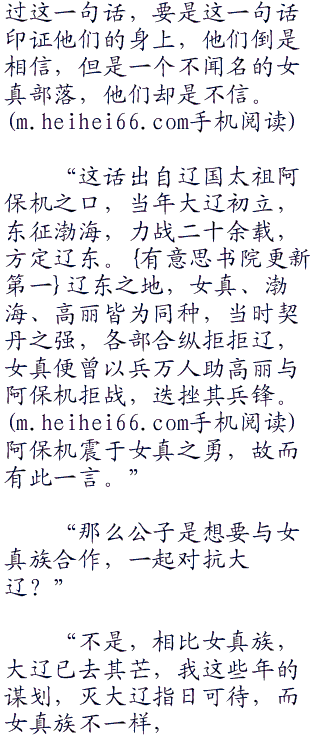 过这一句话，要是这一句话
印证他们的身上，他们倒是
相信，但是一个不闻名的女
真部落，他们却是不信。
(m.heihei66.com手机阅读)
“这话出自辽国太祖阿
保机之口，当年大辽初立，
东征渤海，力战二十余载，
方定辽东。{有意思书院更新
第一}辽东之地，女真、渤
海、高丽皆为同种，当时契
丹之强，各部合纵拒拒辽，
女真便曾以兵万人助高丽与
阿保机拒战，迭挫其兵锋。
(m.heihei66.com手机阅读)
阿保机震于女真之勇，故而
有此一言。”
“那么公子是想要与女
真族合作，一起对抗大
辽？”
“不是，相比女真族，
大辽已去其芒，我这些年的
谋划，灭大辽指日可待，而
女真族不一样，